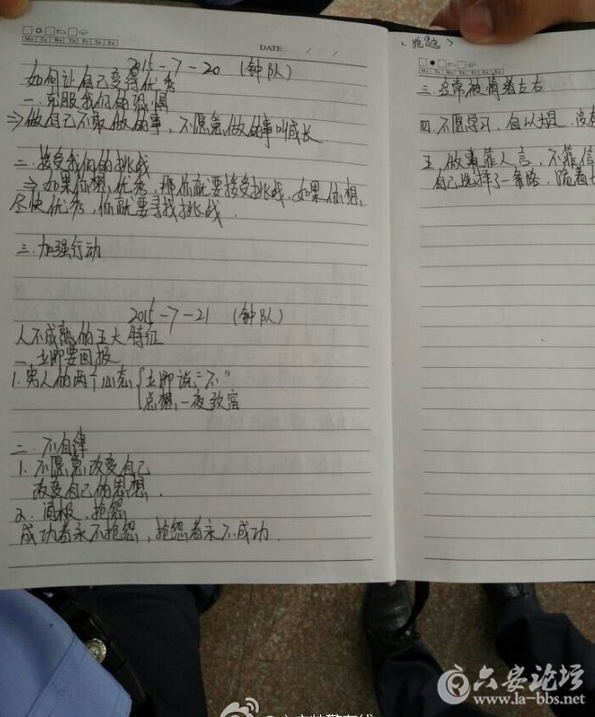 DATE
2015-7-20 (钟队)
如何让自己变得优秀
一.克服我们的恐惧
⇒做自己不敢做的事、不愿意做的事叫成长
二.接受我们的挑战
⇒如果你想优秀,那你就要接受挑战,如果你想,
尽快优秀,你就要寻找挑战.
三.加强行动
2015-7-21 (钟队)
人不成熟的五大特征
一.立即要回报
1.穷人的两个心态{立即说:"不"
总想,一夜致富
二.不自律
1.不愿意改变自己
改变自己的思想.
2.消极、抱怨
成功者永不抱怨,抱怨者永不成功.
三.经常被情绪左右
四.不愿学习,自以为是,没有
五.做事靠人言,不靠信
自己选择了一条路,
六安论坛
www.la-bbs.net